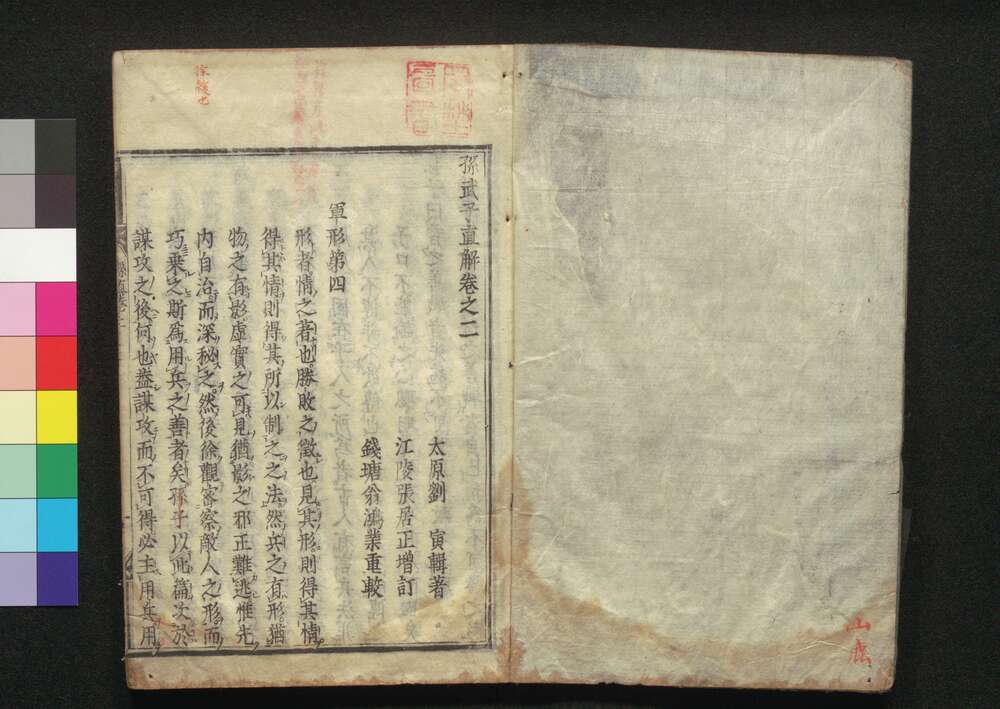 山鹿
孫武子直解卷之二
太原劉　寅輯著
江陵張居正增訂
錢塘翁鴻業重較
軍形第四
形者情之著也勝敗之徵也見其形則得其情
得其情則得其所以制之之法然兵之有形猶
物之有影虛實之可見猶影之邪正難逃惟先
內自治而深秘之然後徐觀密察敵人之形而
巧乘之斯為用兵之善者矣孫子以此篇次於
謀攻之後何也蓋謀攻而不可得必主用兵用